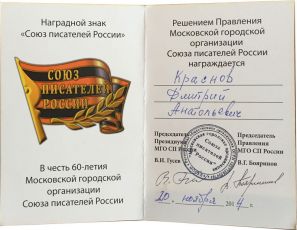 Наградной знак
«Союз писателей России»
СОЮЗ
ПИСАТЕЛЕЙ
РОССИИ
В честь 60-летия
Московской городской
организации
Союза писателей России
Решением Правления
Московской городской
организации
Союза писателей России
награждается
Краснов
Дмитрий
Анатольевич
Председатель
Президиума
МГО СП России
В.И. Гусев
Председатель
Правления
МГО СП России
В.Г. Бояринов
Союз
писателей
России
20 ноября 2014 г.